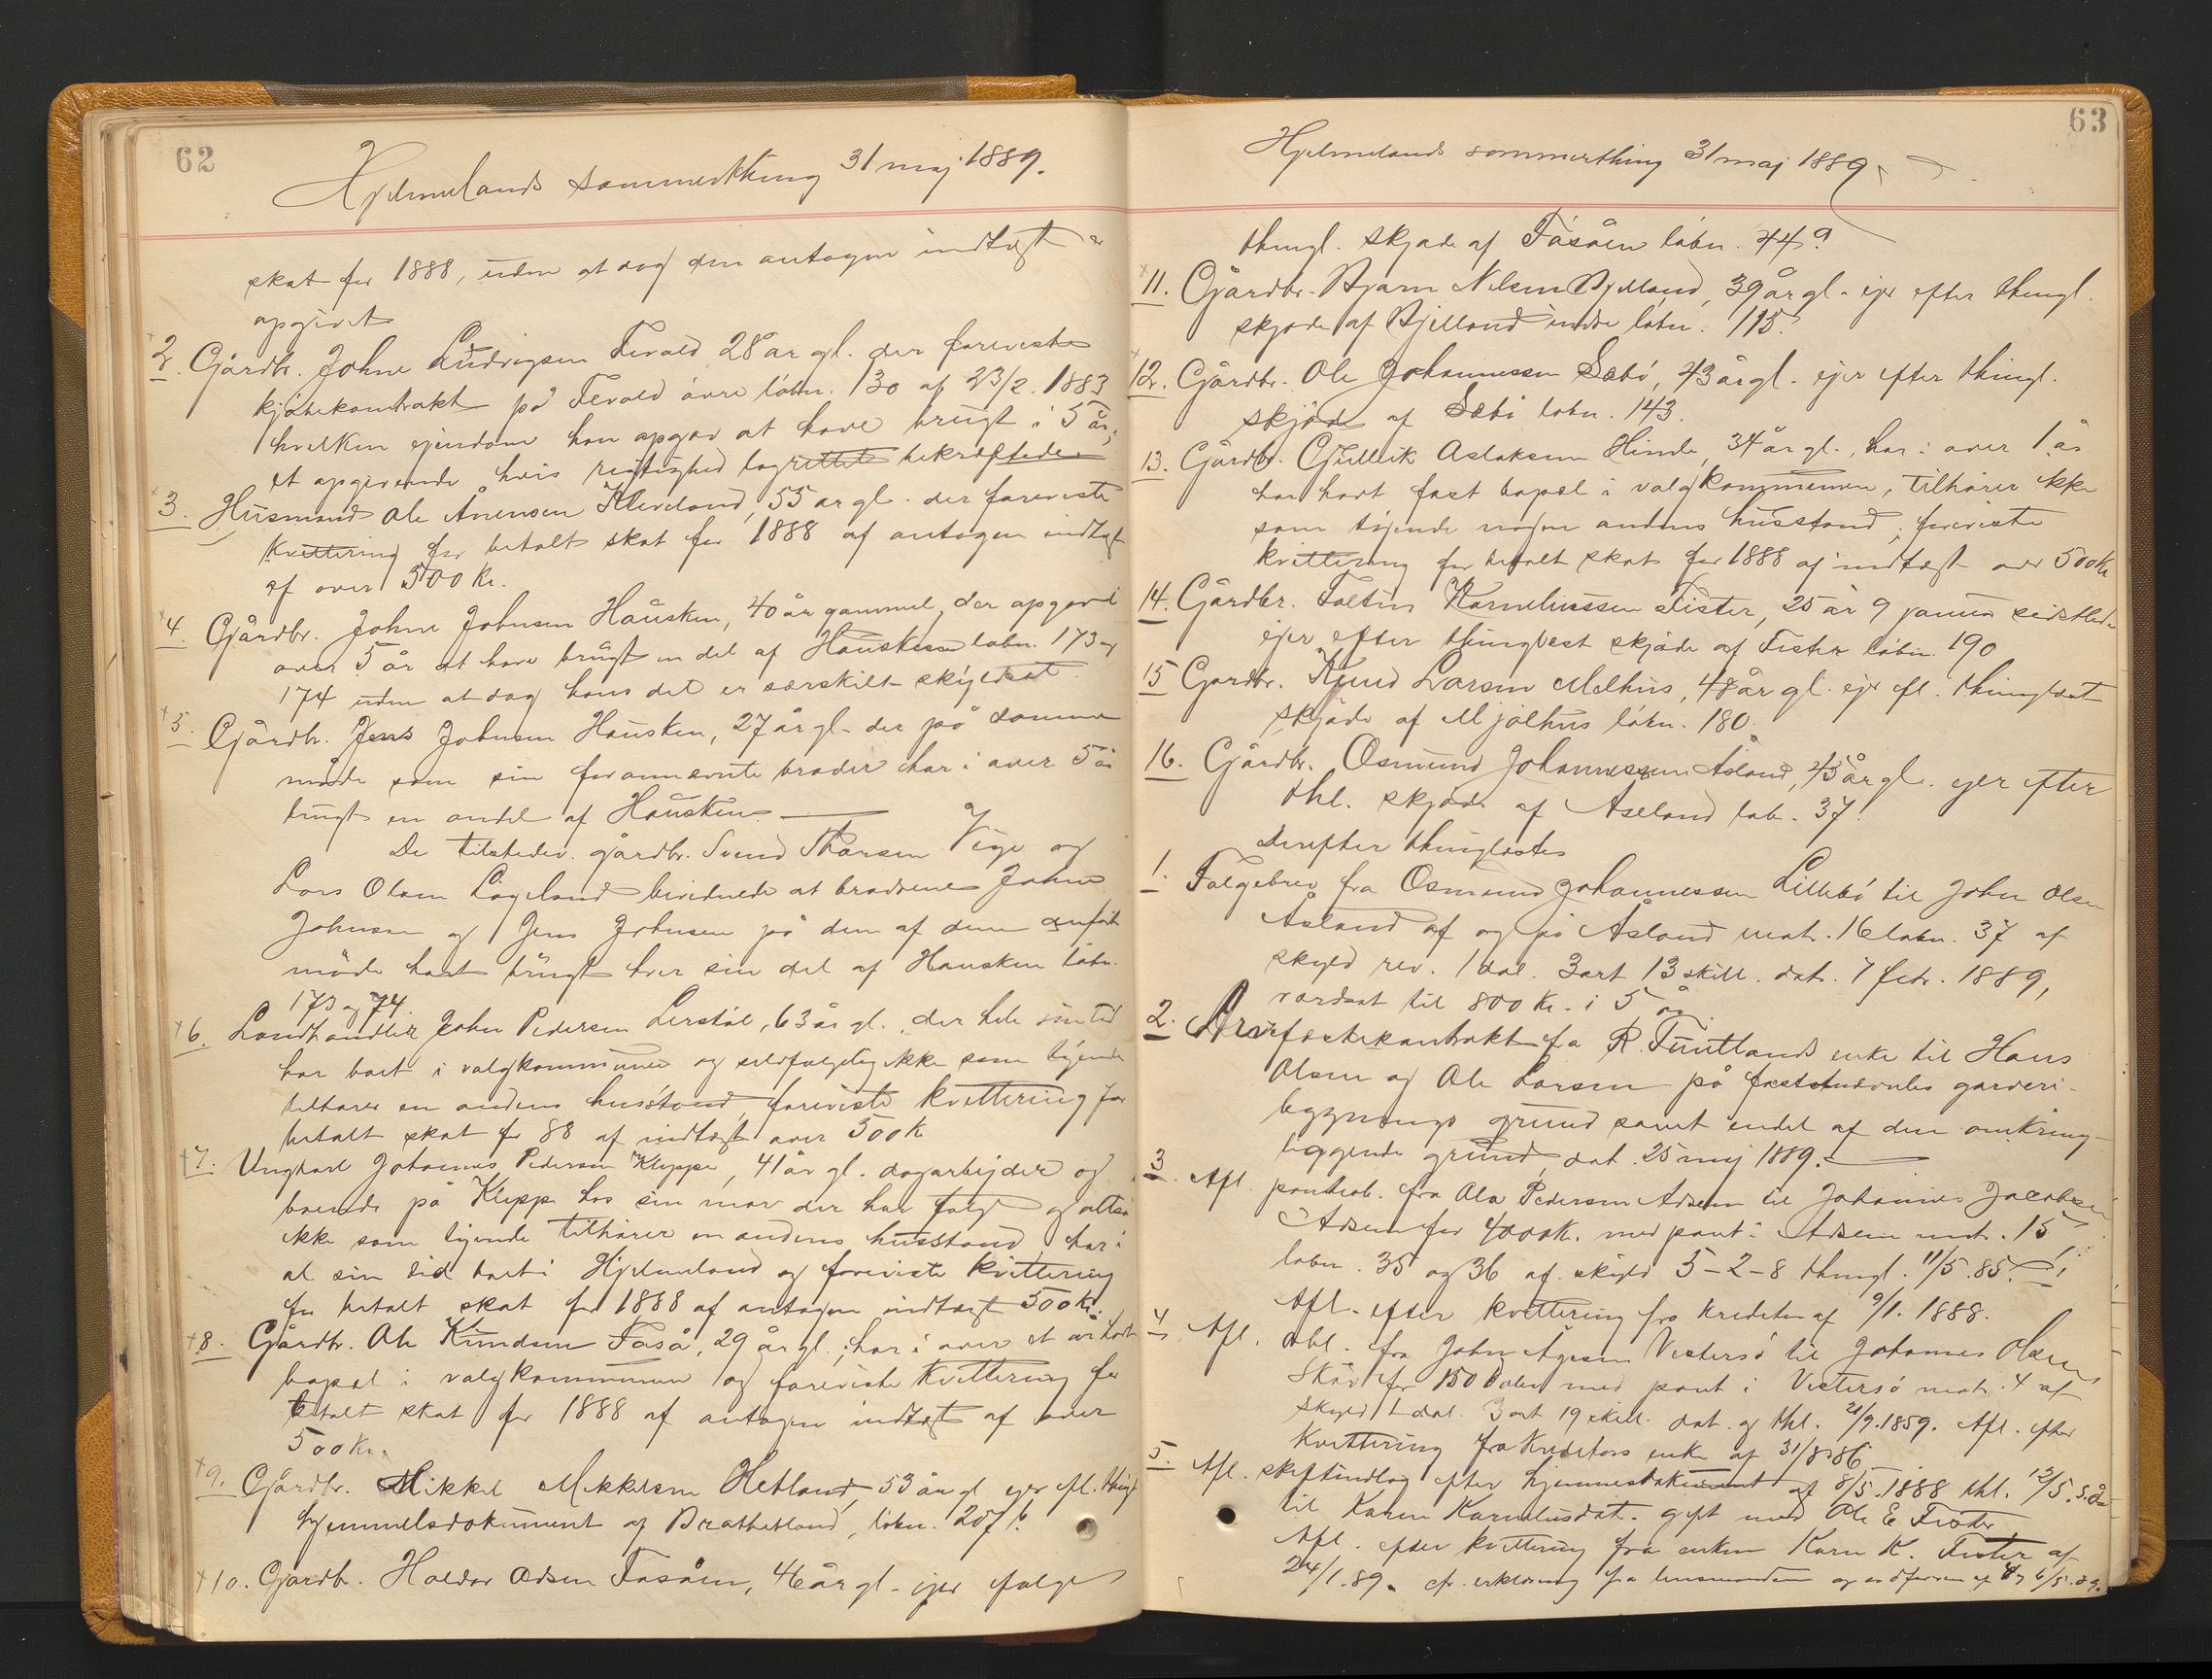 62
Hjelmelands sommerthing 31 maj 1889.
skat for 1888, uden at dog den antagne indtægt er
opgivet
2. Gårdbr. Johne Ludvigsen Tevold 28 år gl. der foreviste
kjøbekontrakt på Tevold øvre løbn. 130 af 23/2. 1883
hvilken ejendom han opgav at have brugt i 5 år,
et opgivende hvis rigtighed lagrettet bekræftede.
3. Husmand Ole Ånensen Kleveland, 55 år gl. der foreviste
kvittering for betalt skat for 1888 af antagen indtægt
af over 500 Kr.
4. Gårdbr. Johne Johnsen Hausken, 40 år gammel, der opgav i
over 5 år at have brugt en del af Hausken løbn. 173 og
174 uden at dog hans del er særskilt skyldsat.
5. Gårdbr. Jens Johnsen Hausken, 27 år gl. der på samme
måde som sin forannævnte broder har i over 5 år
brugt en andel af Hausken.
De tilstedev. gårdbr. Svend Thorsen Vige og
Lars Olsen Lageland bevidnede at brødrene Johne
Johnsen og Jens Johnsen på den af dem anførte
måde havt brugt hver sin del af Hausken løbn.
173 og 74.
6. Landhandler John Pedersen Lerstøl, 63 år gl. der hele sin tid
har boet i valgkommunen og selvfølgelig ikke som tjenende
tilhører en andens husstand, foreviste kvittering for
betalt skat for 88 af indtægt over 500 Kr
7. Ungkarl Johannes Pedersen Kleppe, 41 år gl. dagarbejder og
boende på Kleppe hos sin mor der har folge og altså
ikke som tjenende tilhører en andens husstand, har i
al sin tid boet i Hjelmeland og foreviste kvittering
for betalt skat for 1888 af antagen indtægt 500 Kr.
8. Gårdbr. Ole Knudsen Foså, 29 år gl., har i over et år havt
bopæl i valgkommunen og foreviste kvittering for
betalt skat for 1888 af antagen indtægt af over
500 Kr.
9. Gårdbr. Mikkel Mikkelsen Hetland, 53 år gl ejer efl. thingl
hjemmelsdokument af Brathetland, løbn. 207 b.
10. Gårdbr. Haldor Odsen Fosåen, 46 år gl. ejer ifølge
63
Hjelmelands sommerthing 31 maj 1889
thingl. skjøde af Fosåen løbn. 44 a
11. Gårdbr. Bjørn Nilsen Bjelland, 39 år gl. ejer efter thingl.
skjøde af Bjelland indre løbn. 115.
12. Gårdbr. Ole Johannessen Sæbø, 43 år gl. ejer efter thingl.
skjøde af Sæbø løbn. 143.
13. Gårdbr. Gjullik Aslaksen Hinde, 34 år gl., har i over 1 år
har havt fast bopæl i valgkommunen, tilhører ikke
som tjenende nogen andens husstand; foreviste
kvittering for betalt skat for 1888 af indtægt over 500 Kr
14. Gårdbr. Toltin Korneliussen Fister, 25 år 9 januar sidstleden
ejer efter thinglæst skjøde af Fister løbn. 190
15 Gårdbr. Knud Larsen Melhus, 48 år gl. ejer efl. thinglæst
skjøde af Mjølhus løbn. 180.
16. Gårdbr. Osmund Johannessen Åsland, 45 år gl. ejer efter
thl. skjøde af Aaseland løb. 37.
Derefter thinglæstes
1. Følgebrev fra Osmund Johannessen Lillebø til John Olsen
Åsland af og på Åsland matr. 16 løbn. 37 af
skyld rev. 1 dal. 3 ort 13 skill. dat. 7 febr. 1889,
værdsat til 800 Kr. i 5 år.
2. Arvefæstekontrakt fra R. Tuntlands enke til Hans
Olsen og Ole Larsen på fæststnævntes garveri-
bygnings grund samt endel af den omkring-
liggende grund, dat. 25 maj 1889.
3. Afl. panteob. fra Ola Pedersen Adsen til Johannes Jacobsen
Adsen for 4000 Kr. med pant i Adsen matr. 15,
løbn. 35 og 36 af skyld 5-2-8 thingl. 11/5. 85.
Afl. efter kvittering fra kreditor af 9/1. 1888.
4 Afl. obl. fra John Ågesen Vestersø til Johannes Olsen
Skår for 150 Daler med pant i Vestersø matr. 4 af
skyld 1 dal. 3 ort 19 skill. dat. og thl. 21/9. 1859. Afl. efter
kvittering fra kreditors enke af 31/8 86
5. Afl. skifteudlæg efter hjemmelsdokument af 8/5. 1888 thl. 12/5. s. år
til Karen Kornelusdat. gift med Ole E Fister.
Afl. efter kvittering fra enken Karn K. Fister af
24/1. 89. cfr. erklæring fra lensmanden og ordføreren af 4 og 6/5. 89.